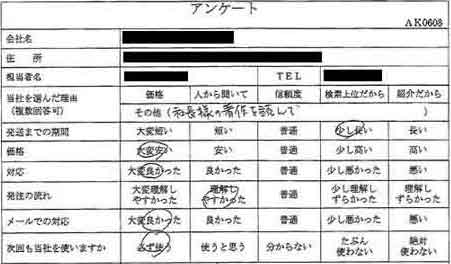 アンケート
AK0603
会社名
住 所
担当者名 TEL
当社を選んだ理由 価格 人から聞いて 信頼度 検索上位だから 紹介だから
(複数回答可) その他 (社長様の著作を読んで )
発送までの期間 大変短い 短い 普通 少し長い 長い
価格 大変安い 安い 普通 少し高い 高い
対応 大変良かった 良かった 普通 少し悪かった 悪い
発注の流れ 大変理解しやすかった 理解しやすかった 普通 少し理解しずらかった 理解しずらかった
メールでの対応 大変良かった 良かった 普通 少し悪かった 悪い
次回も当社を使いますか 必ず使う 使うと思う 分からない たぶん使わない 絶対使わない